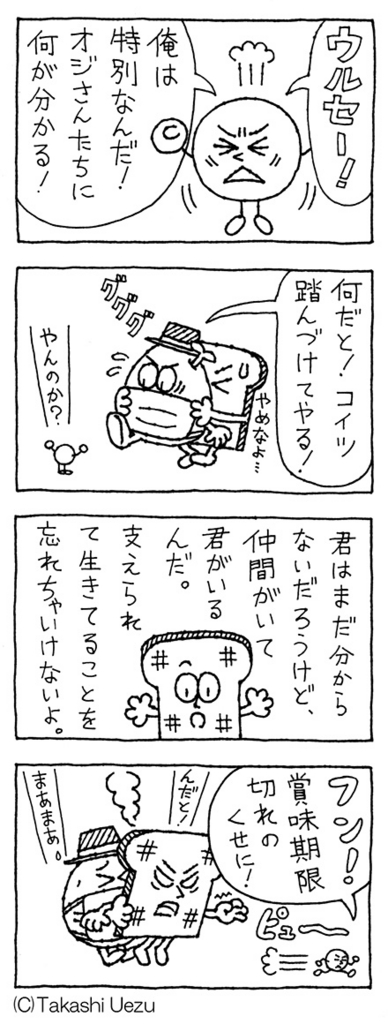 ウルセー!
俺は
特別なんだ!
オジさんたちに
何が分かる!
何だと!コイツ
踏んづけてやる!
グググ
やめなよ…
やんのか?
君はまだ分から
ないだろうけど、
仲間がいて
君がいる
んだ。
支えられ
て生きてることを
忘れちゃいけないよ。
フン!
賞味期限
切れの
くせに!
ピュー
んだと!
まあまあ。
(C)Takashi Uezu